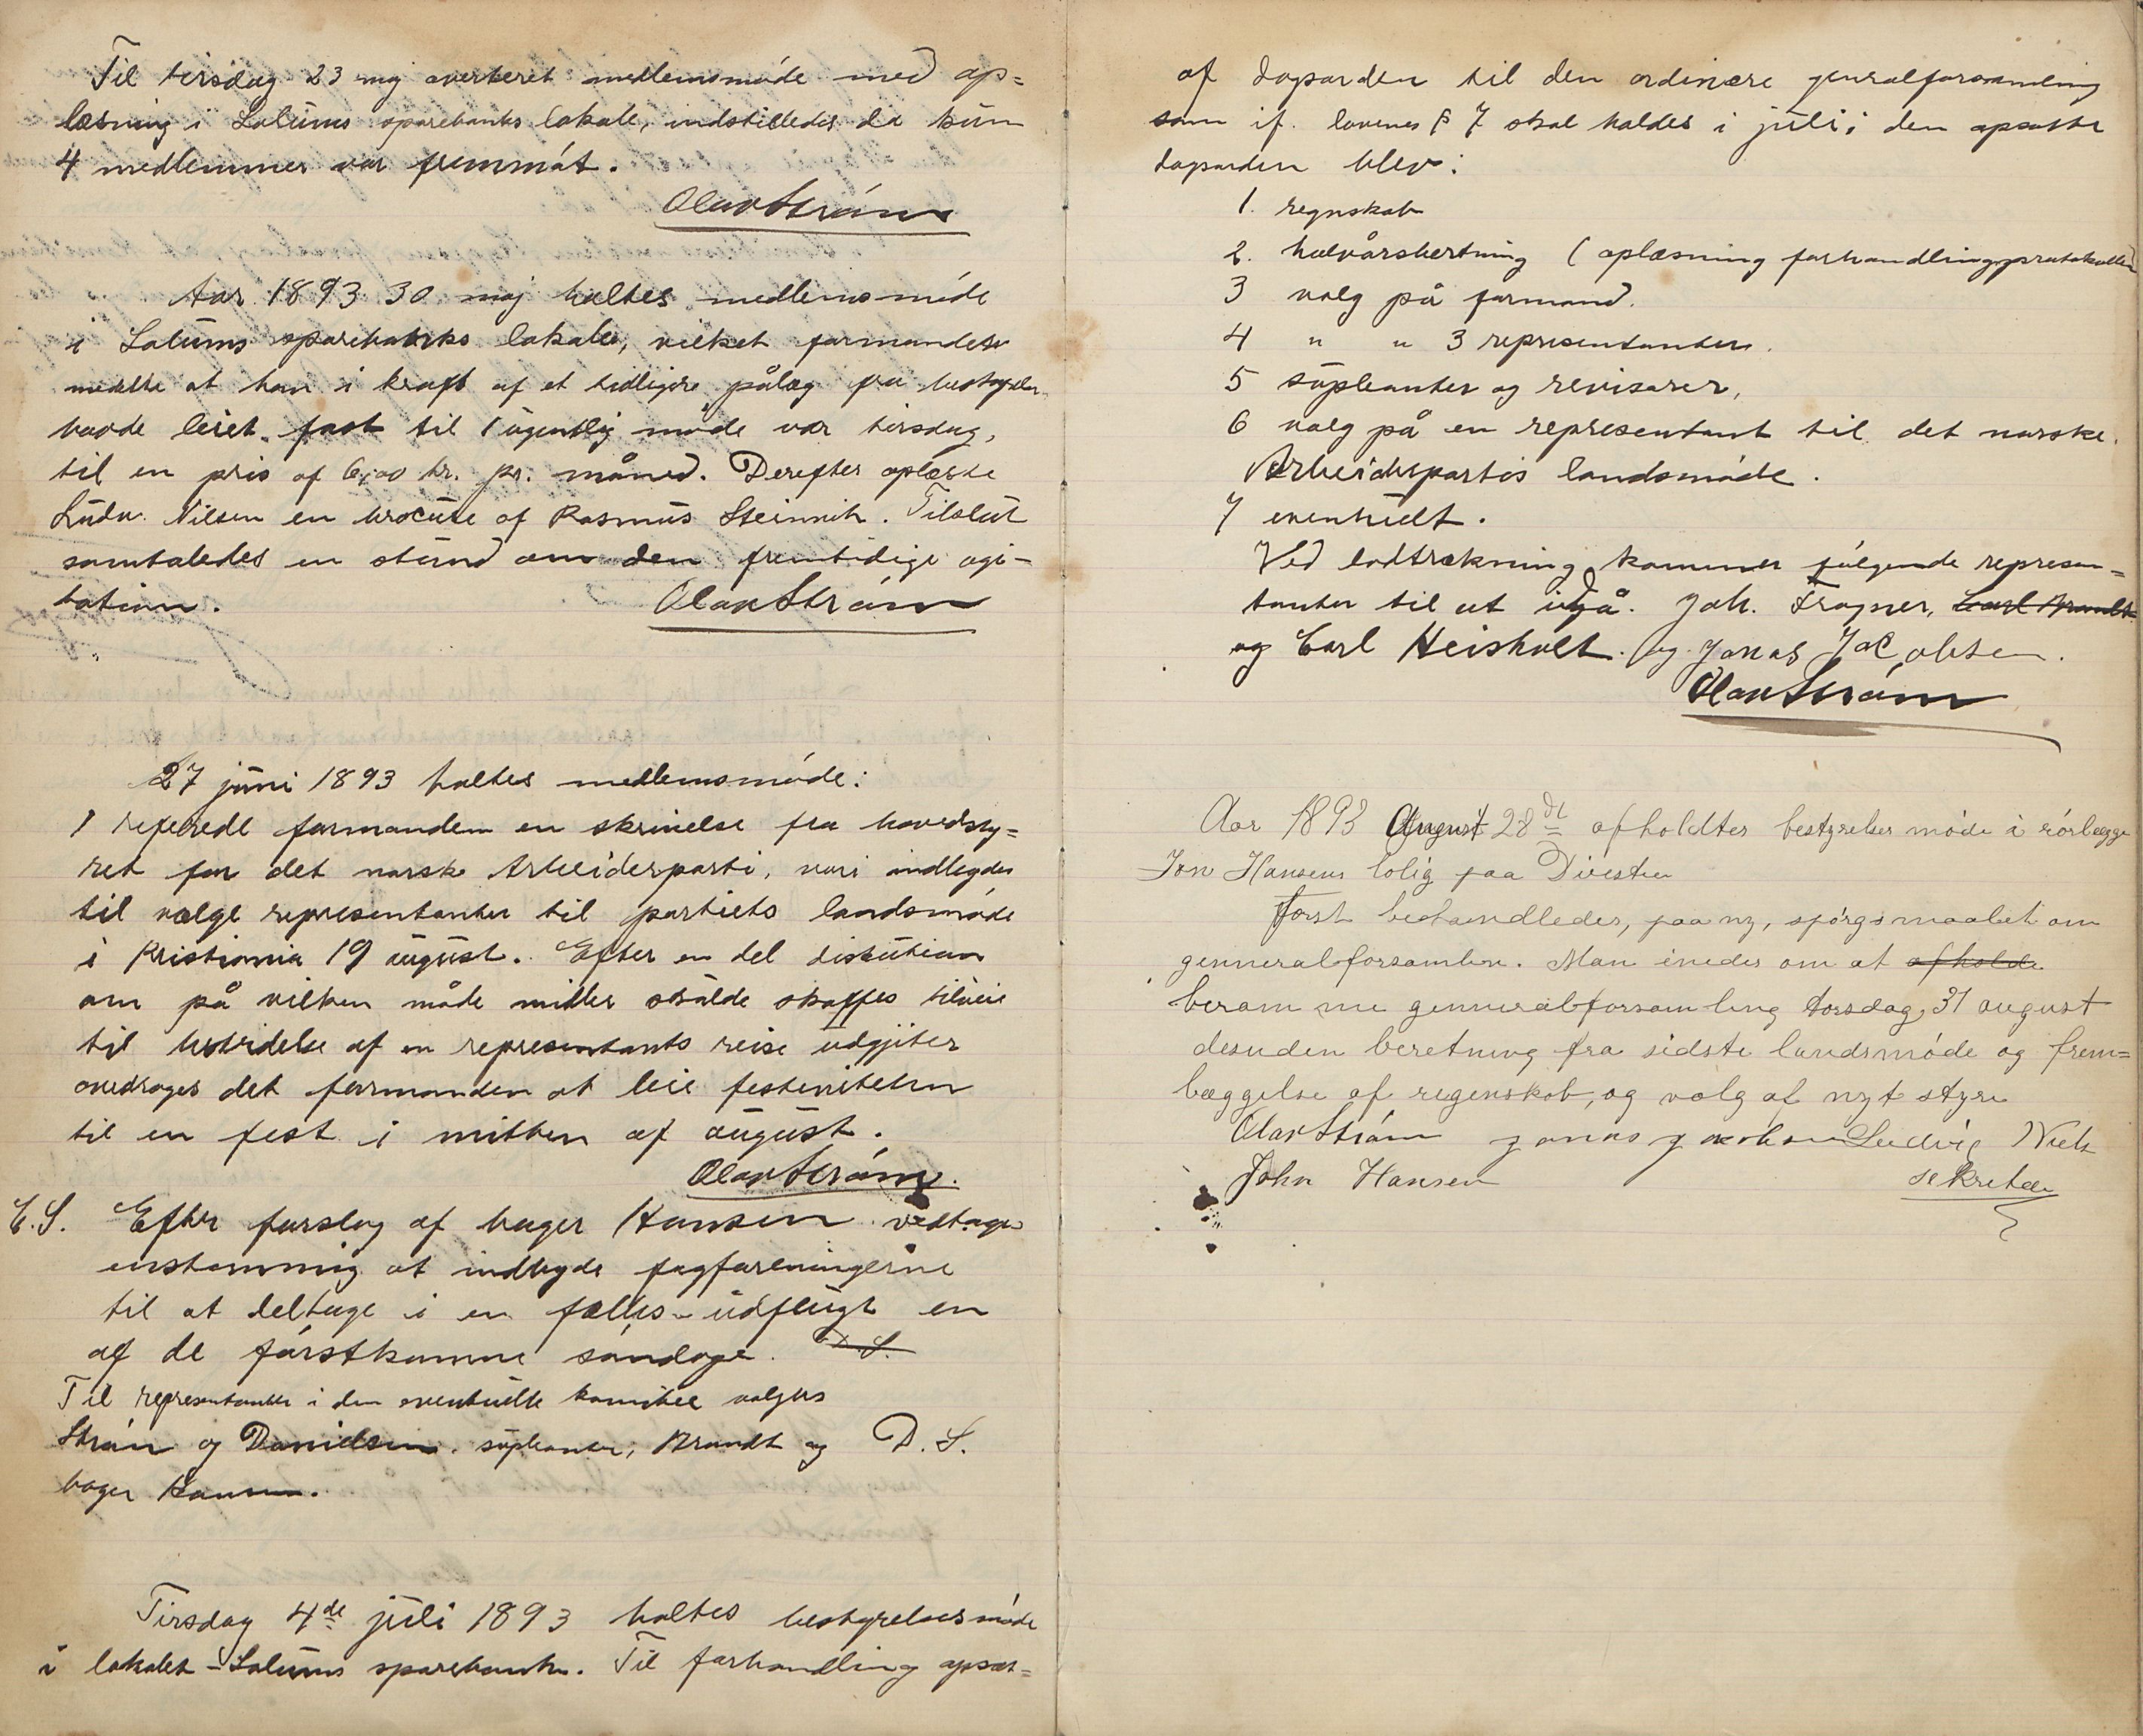 Til tirsdag 23 maj averteret medlemsmøde med op=
læsning i Solums sparebanks lokale, indstilledes da kun
4 medlemmer var fremmøt.
Olav Strøm
Aar 1893 30 maj holtes medlemsmøde
i Solums sparebanks lokale, vilket formanden
medelte at han i kraft af et tidligere pålæg fra bestyrelsen
havde leiet fast til 1 ugentlig møde vær tirsdag,
til en pris af 6,00 kr. pr. måned. Derefter oplæste
Ludv. Nilsen en brocure af Rasmus Steinsvik. Tilslut
samtaledes en stund om den fremtidige agi-
tation.
Olav Strøm
27 juni 1893 holtes medlemsmøde:
1 refererede formanden en skrivelse fra hovedsty=
ret for det norske Arbeiderparti, vori indbydes
til vælge representanter til partiets landsmøde
i Kristiania 19 august. Efter en del diskution
om på vilken måde midler skulde skaffes tilveie
til bestridelse af en representants reise udgifter
overdroges det formanden at leie festiviteten
til en fest i midten af august.
Olav Strøm.
E.S. Efter forslag af bager Hansen vedtoges
enstemmig at indbyde fagforeningerne
til at deltage i en fælles-udflugt en
af de førstkomne søndage. D.S.
Til representanter i den eventuelle komitee valgtes
Strøm og Danielsen, supleanter, Brandt og D.S.
bager Hansen.
Tirsdag 4de juli 1893 holtes bestyrelsesmøde
i lokalet - Solums sparebank. Til forhandling opsæt=
af dagsorden til den ordinære generalforsamling
som if. lovenes § 7 skal holdes i juli; den opsatte
dagsorden blev:
1. regnskab
2. halvårsbertning (oplæsning forhandlingsprotokollen
3 valg på formand.
4 " " 3 representanter.
5 supleanter og revisorer,
6 valg på en representant til det norske
Arbeiderpartis landsmøde.
7 eventuelt.
Ved lodtrækning kommer følgende represen=
tanter til at udgå. Joh. Fragner, Carl Brandt
og Carl Heisholt. og Jonas Jacobsen.
Olav Strøm
Aar 1893 August 28de afholdtes bestyrelses møde i rørlægge
Jon Hansens bolig paa
Først behandledes, paa ny, spørgsmaalet om
genneralforsamlin. Man enedes om at afholde
beramme genneralforsamling torsdag 31 august
desuden beretning fra sidste landsmøde og frem=
læggelse af regenskab, og valg af nyt styre
Olav Strøm Jonas Jacobsen Ludvig Niels
John Hansen sekretær